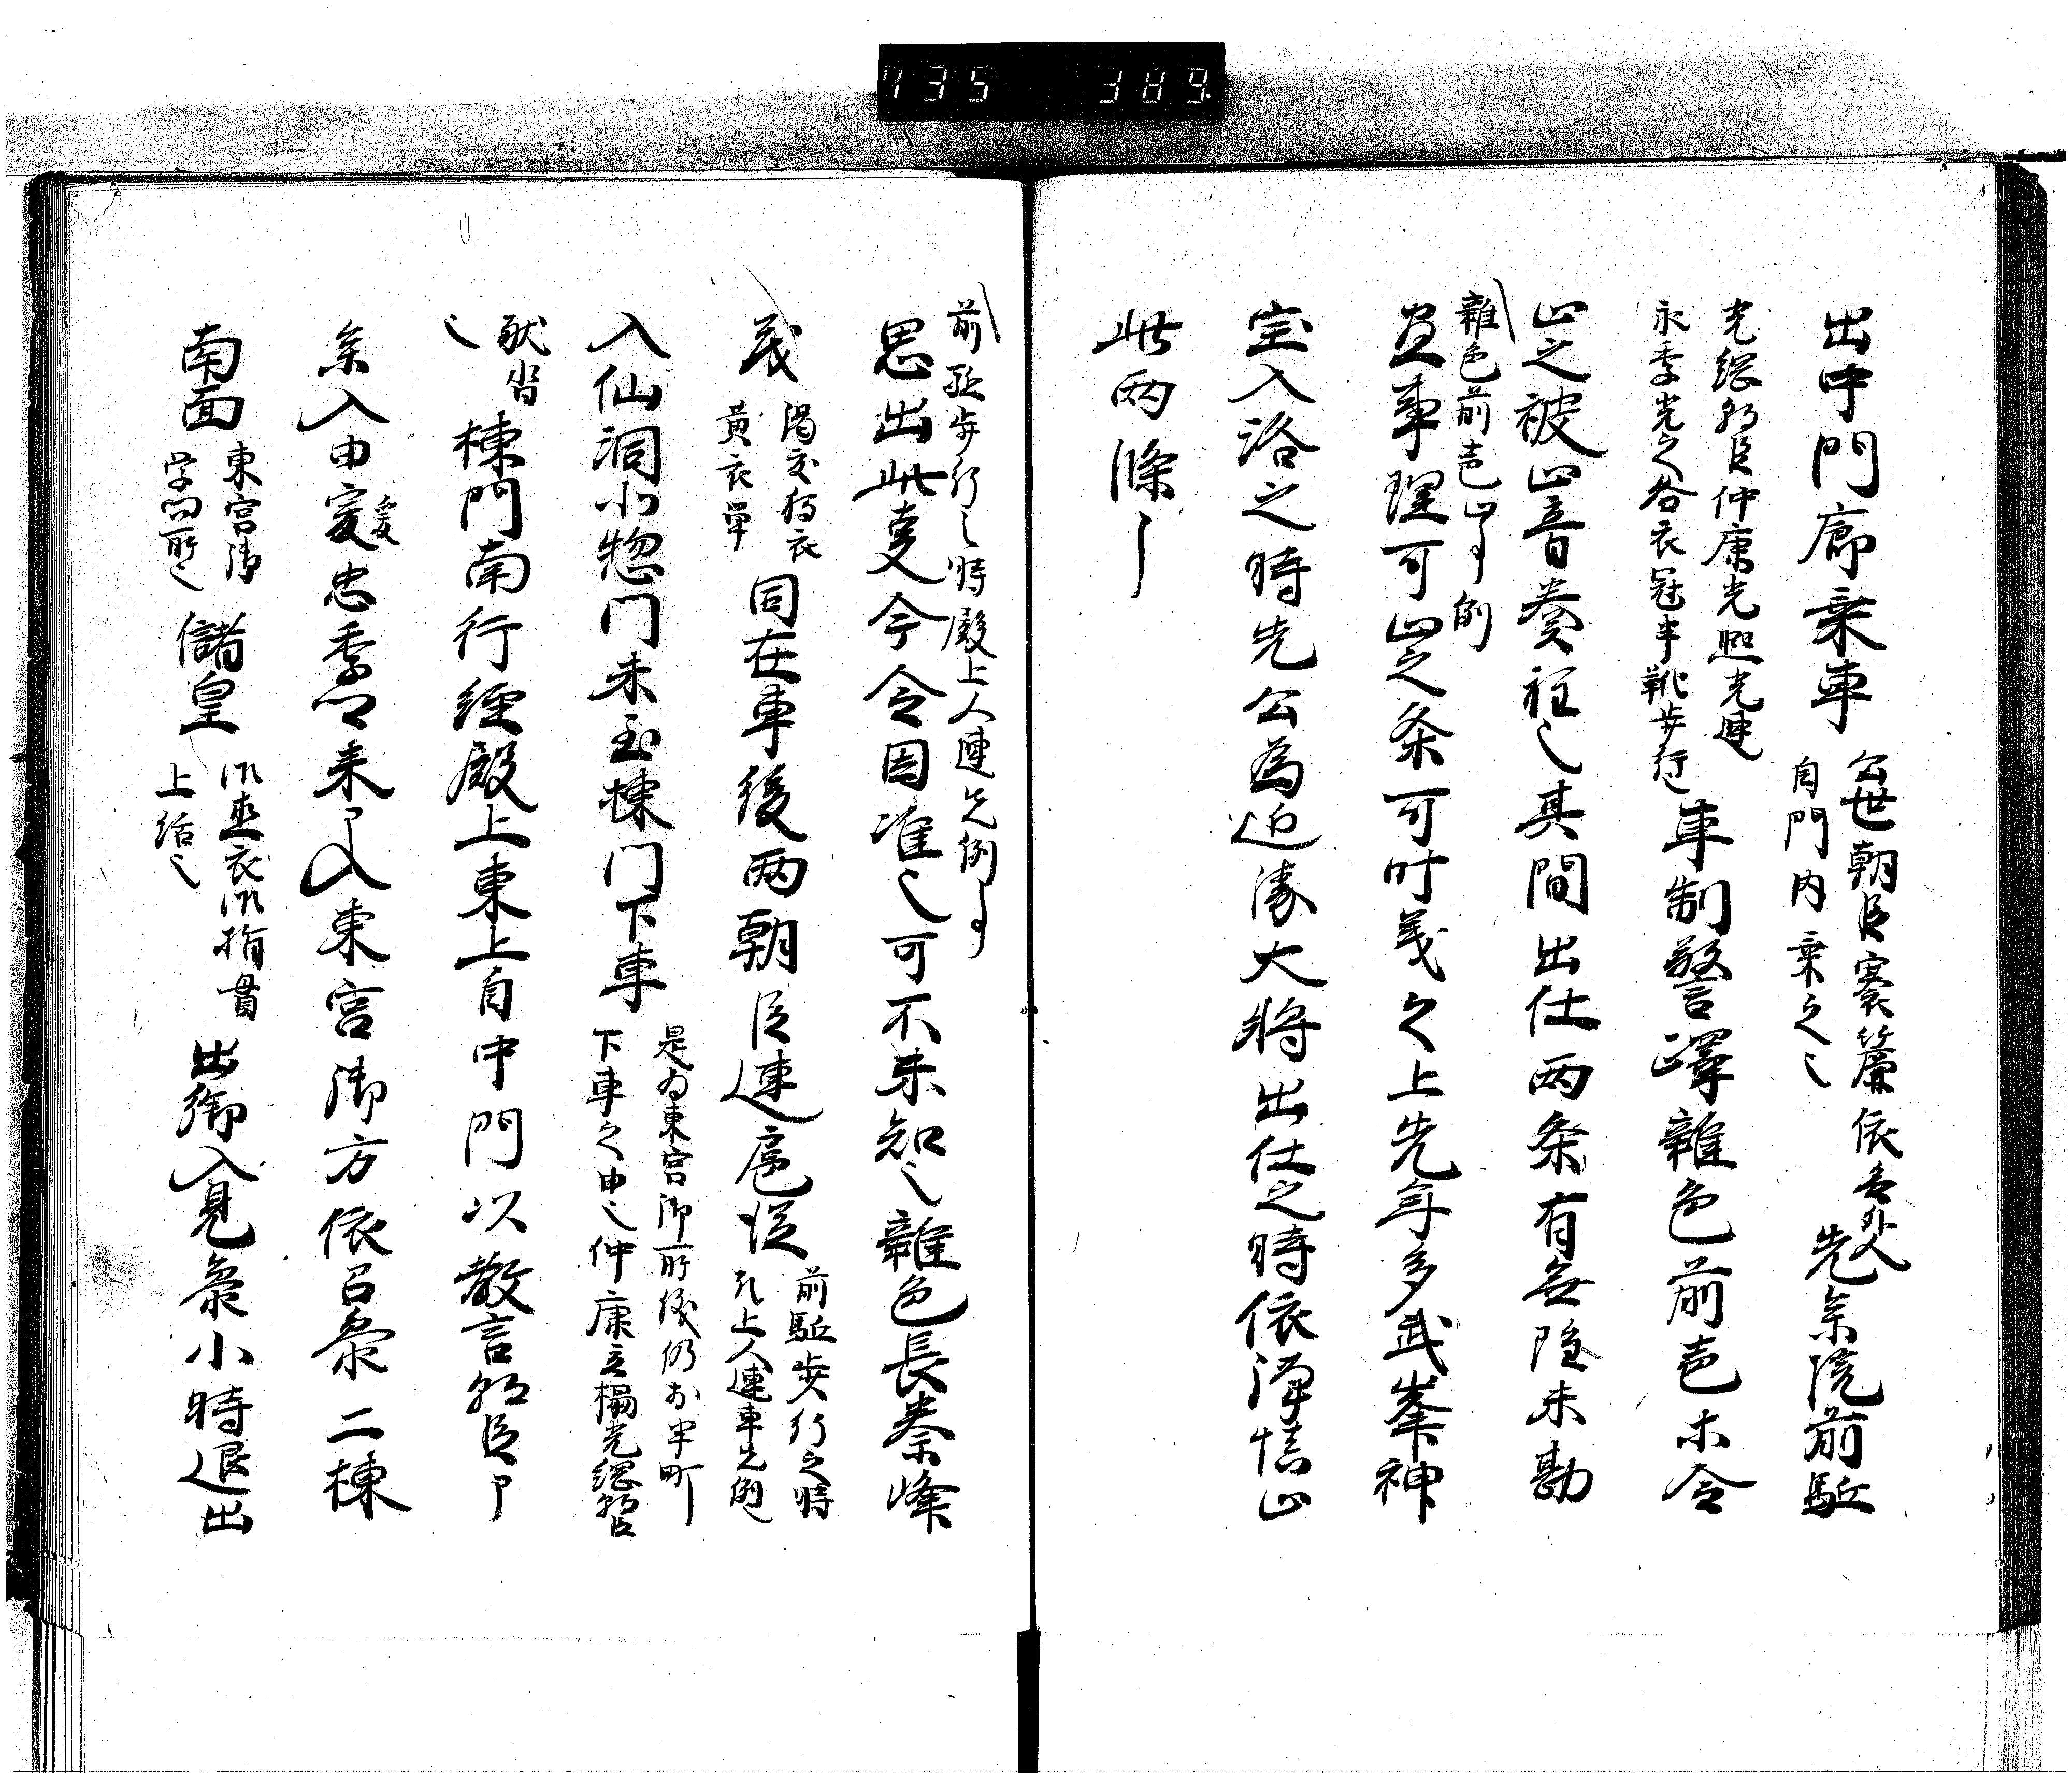 735 389
出中門廊乗車公世朝臣褰簾依無外人自門内乗之、先参院前駈
光綱朝臣仲康光熙光連永季光之各衣冠半靴歩行、車制警蹕雑色前声未令
止之被止音奏程也其間出仕両条有無隠未勘
雑色前声止事例
且事理可止之条可叶義之上先年多武峯神
宝入洛之時先公為近衛大将出仕之時依憚慎止
此両條了
前駈歩行之時殿上人連先例事
思出此事今令因准之可不未知之雑色長秦峰
茂褐交狩衣黄衣単同在車後両朝臣連扈従前駈歩行之時殿上人連車先例也
入仙洞北惣門未至棟門下車是為東宮御所後仍於半町下車之由也仲康立榻光綱朝臣
献沓也棟門南行経殿上東上自中門以教言朝臣申
参入由爰忠季卿来了入東宮御方依召参二棟
南面東宮御学問所也儲皇御直衣御指貫上括也出御入見参小時退出